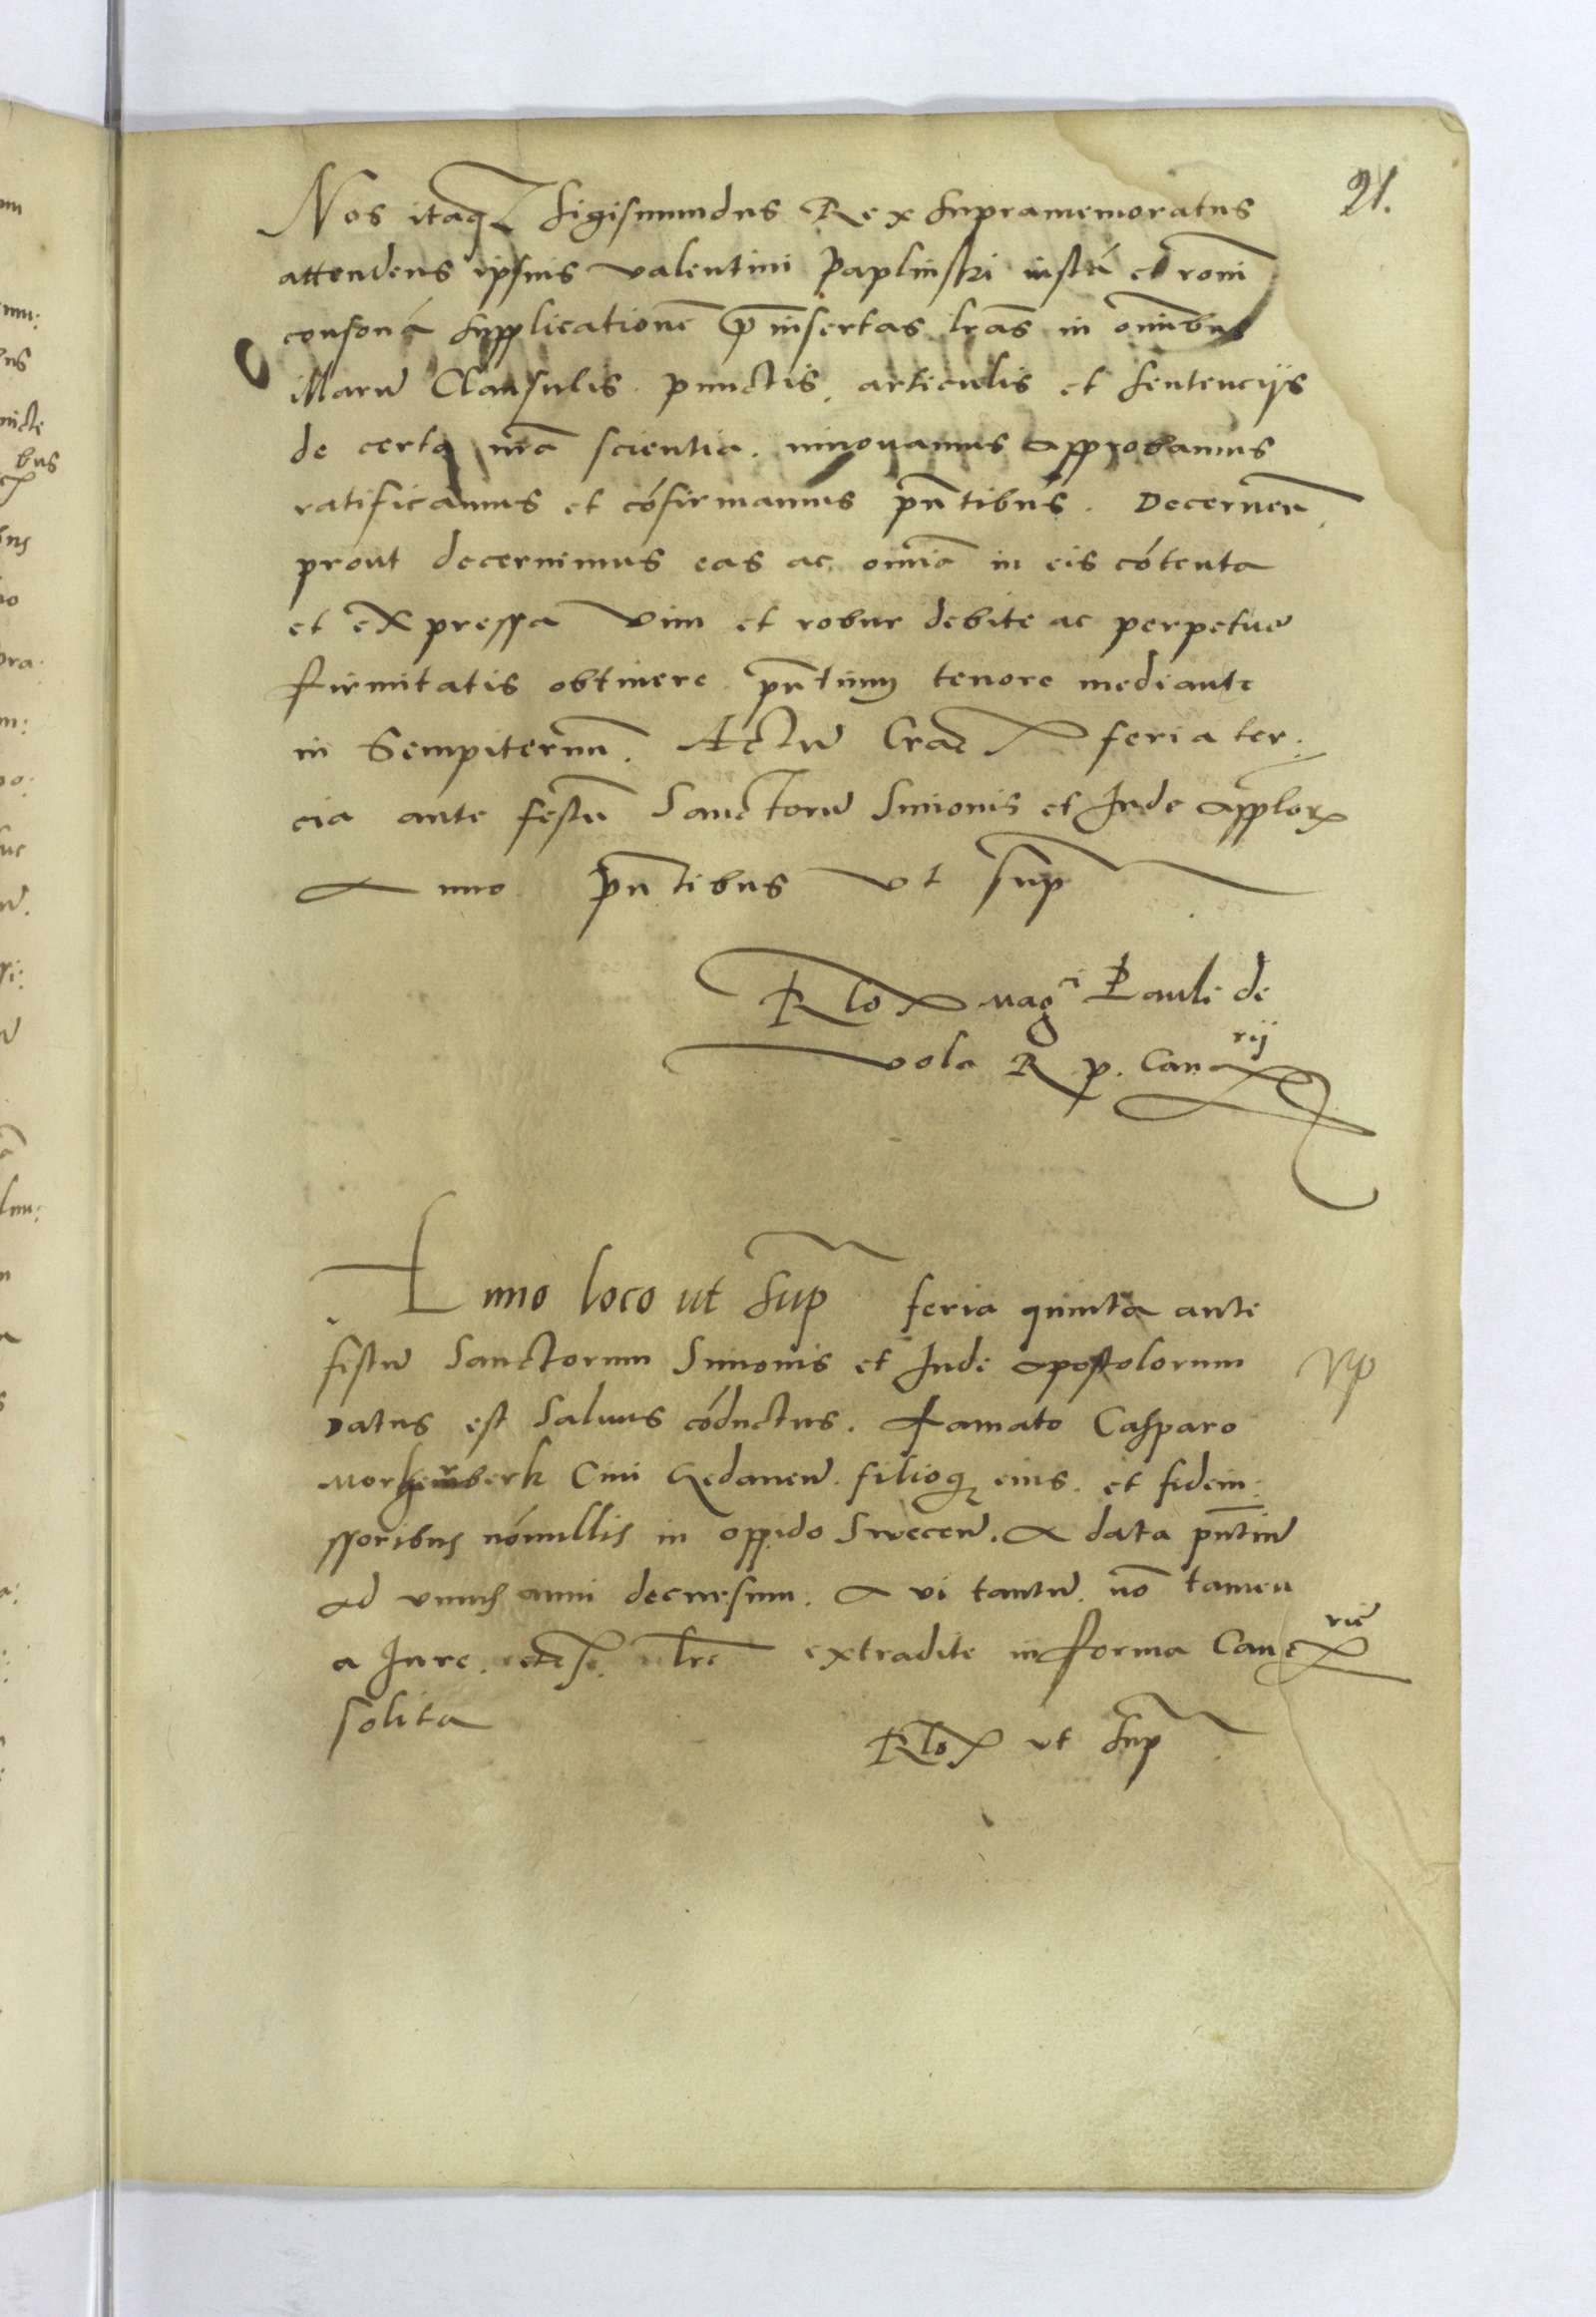 21.
Nos itaq Sigismundus Rex supramemoratus
attendens ipsius valentini Paplinski iustá et roni
consoná supplicationē p̄insertas lrās in omībus
illarū Clausulis punctis, articulis et sentencijs
de certa nrā scientia. innovamus approbamus
ratificamus et cófirmamus pn̄tibus. Decernen̄
prout decernimus eas ac omīa in eis cótenta
et expressa vim et robur debite ac perpetue
firmitatis obtinere pn̄tium tenore mediante
in Sempiternū. Actū Crac feria ter:
cia ante festū Sanctorū Simonis et Jude applorꝝ
Anno pn̄tibus vt supͣ
Rlo mag^ci Pauli de
vola R p. Can^rij
Anno loco ut supͣ feria quinta ante
festū Sanctorum Simonis et Jude apostolorum
Datus est salvus cóductus. Famato Casparo
Civi Gedaneñ. filioqꝫ eius. et fideiu:
ssoribus nónullis in oppido Swecen̄. A data pn̄tiū
ad unius anni decursum. A vi tantū. nō tamen
a Jure. lrē extradite in forma Canc^rie
solita
Rlo ut supͣ